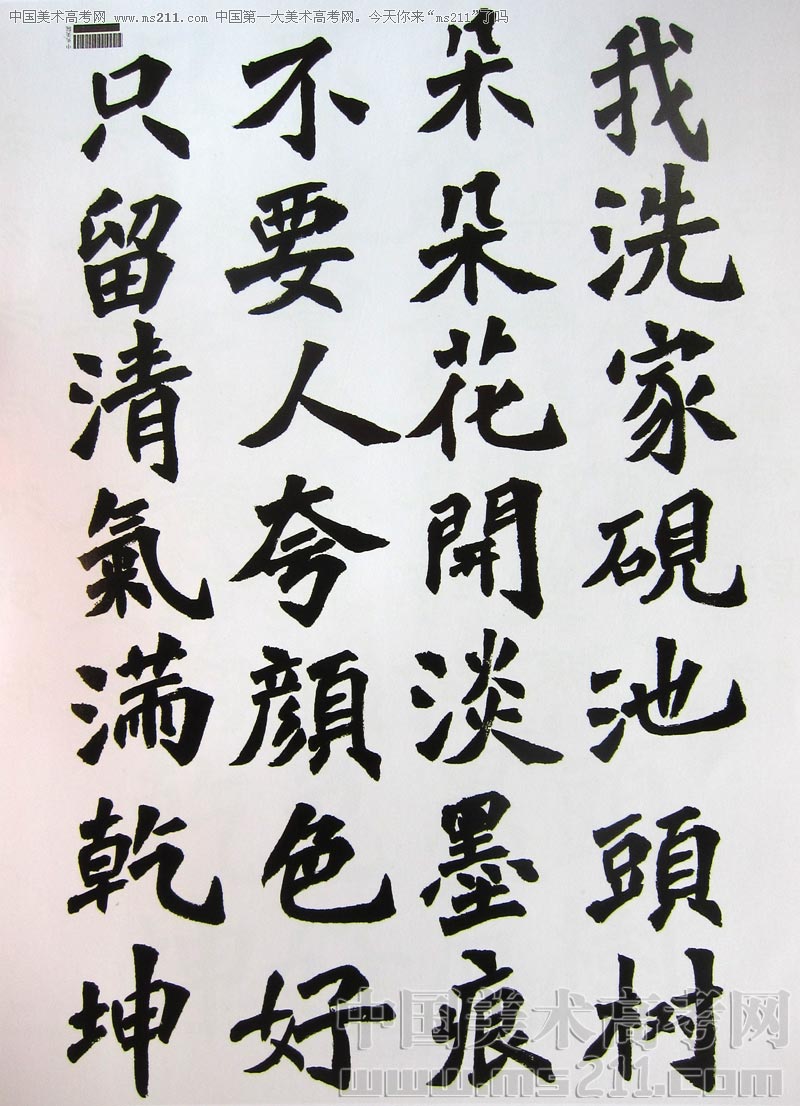 中国美术高考网_www.ms211.com 中国第一大美术高考网。今天你来“ms211”了吗
我洗家硯池頭树
朵朵花開淡墨痕
不要人夸顔色好
只留清氣满乾坤
中国美术高考网
www.ms211.com